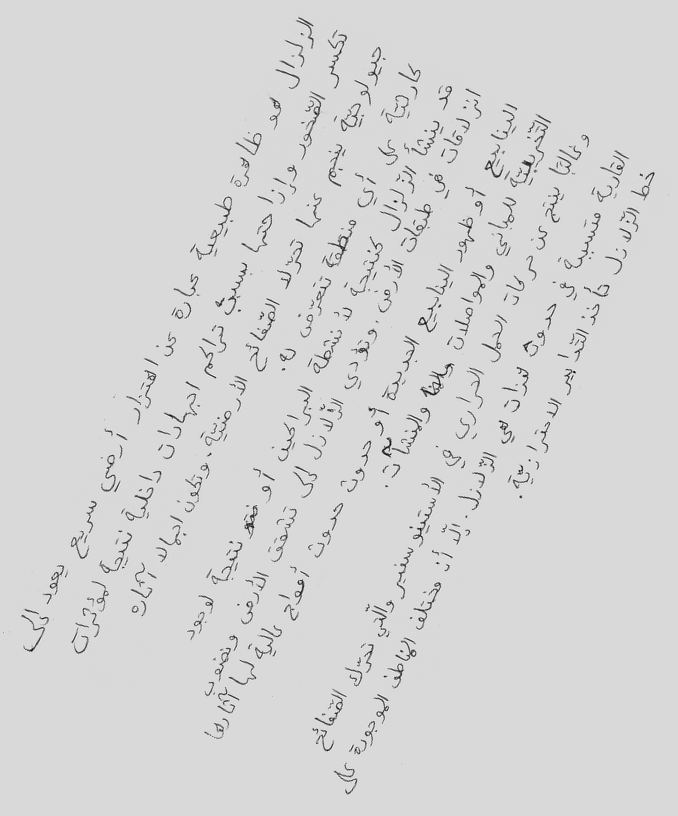 الزلزال هو ظاهرة طبيعية عبارة عن اهتزاز أرضي سريع يعود إلى
تكسر الصّخور وإزاحتها بسبب تراكم اجهادات داخلية نتيجة لمؤثرات
جيولوجية ينجم عنها تحرّك الصّفائح الأرضيّة، وتكون اجمالا آثاره
كارثيّة على أي منطقة تتعرّض له.
قد ينشأ الزلزال كنتيجة لأنشطة البراكين أو نتيجة لوجود
انزلاقات في طبقات الأرض، وتؤدي الزّلازل إلى تشقق الأرض ونضوب
الينابيع أو ظهور الينابيع الجديدة أو حدوث حدوث أمواج عالية لها آثارها
التّخريبيّة للمباني والمواصلات والمنشآت.
وغالبًا ينتج عن حركات الحمل الحراري في الأستينوسفير والتّي تحرّك الصّفائح
القارية متسببة في حدوث هزات هي الزّلازل. إلّا أن مختلف المناطق الموجودة على
خط الزّلازل تأخذ التّدابير الاحترازيّة.